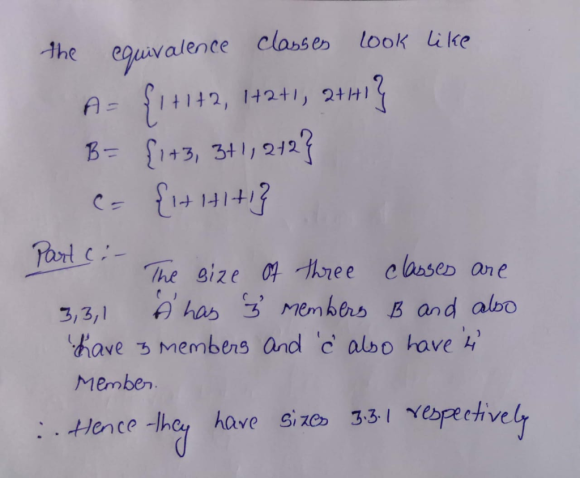 the equivalence classes look like
A = {1+1+2, 1+2+1, 2+1+1}
B = {1+3, 3+1, 2+2}
C = {1+1+1+1}
Part c :-
The size of three classes are
3,3,1 'A' has '3' members B and also
have 3 members and 'c' also have '4'
Member.
∴ Hence they have sizes 3.3.1 respectively